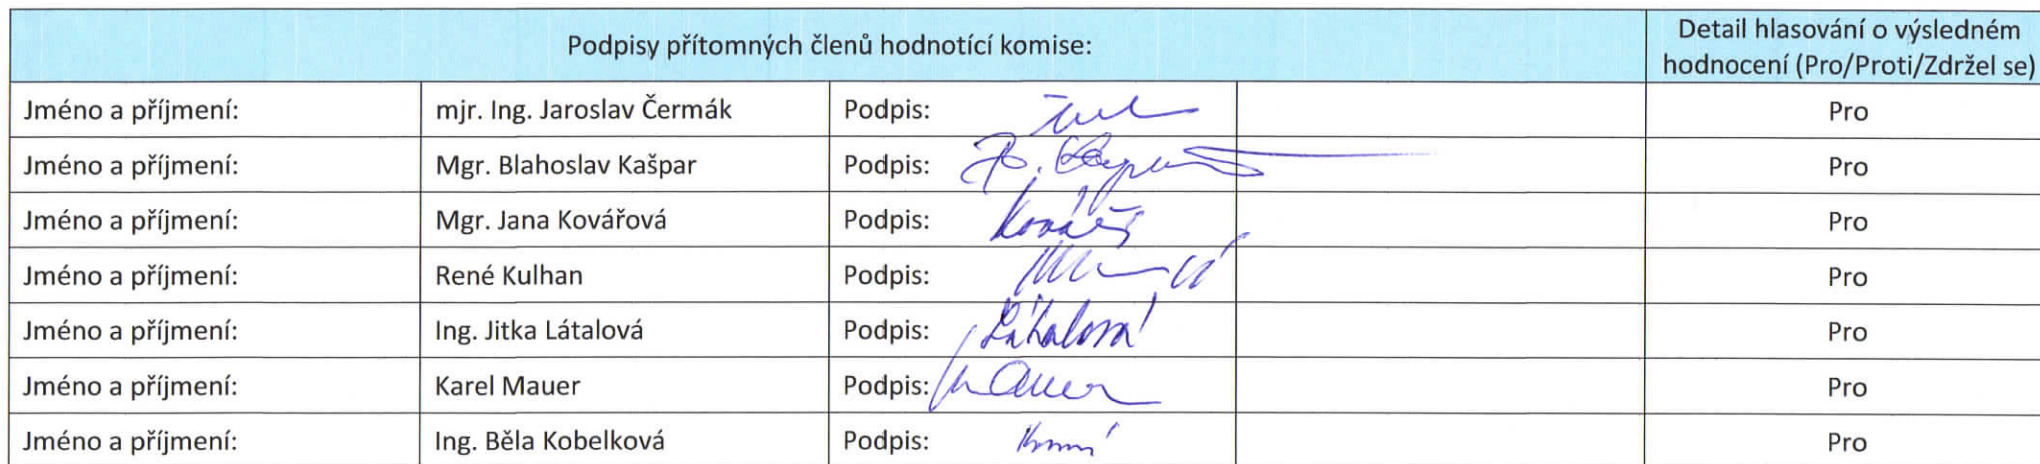 Podpisy přítomných členů hodnotící komise:
Detail hlasování o výsledném
hodnocení (Pro/Proti/Zdržel se)
Jméno a příjmení: mjr. Ing. Jaroslav Čermák Podpis: Pro
Jméno a příjmení: Mgr. Blahoslav Kašpar Podpis: Pro
Jméno a příjmení: Mgr. Jana Kovářová Podpis: Pro
Jméno a příjmení: René Kulhan Podpis: Pro
Jméno a příjmení: Ing. Jitka Látalová Podpis: Látalová Pro
Jméno a příjmení: Karel Mauer Podpis: Mauer Pro
Jméno a příjmení: Ing. Běla Kobelková Podpis: Pro